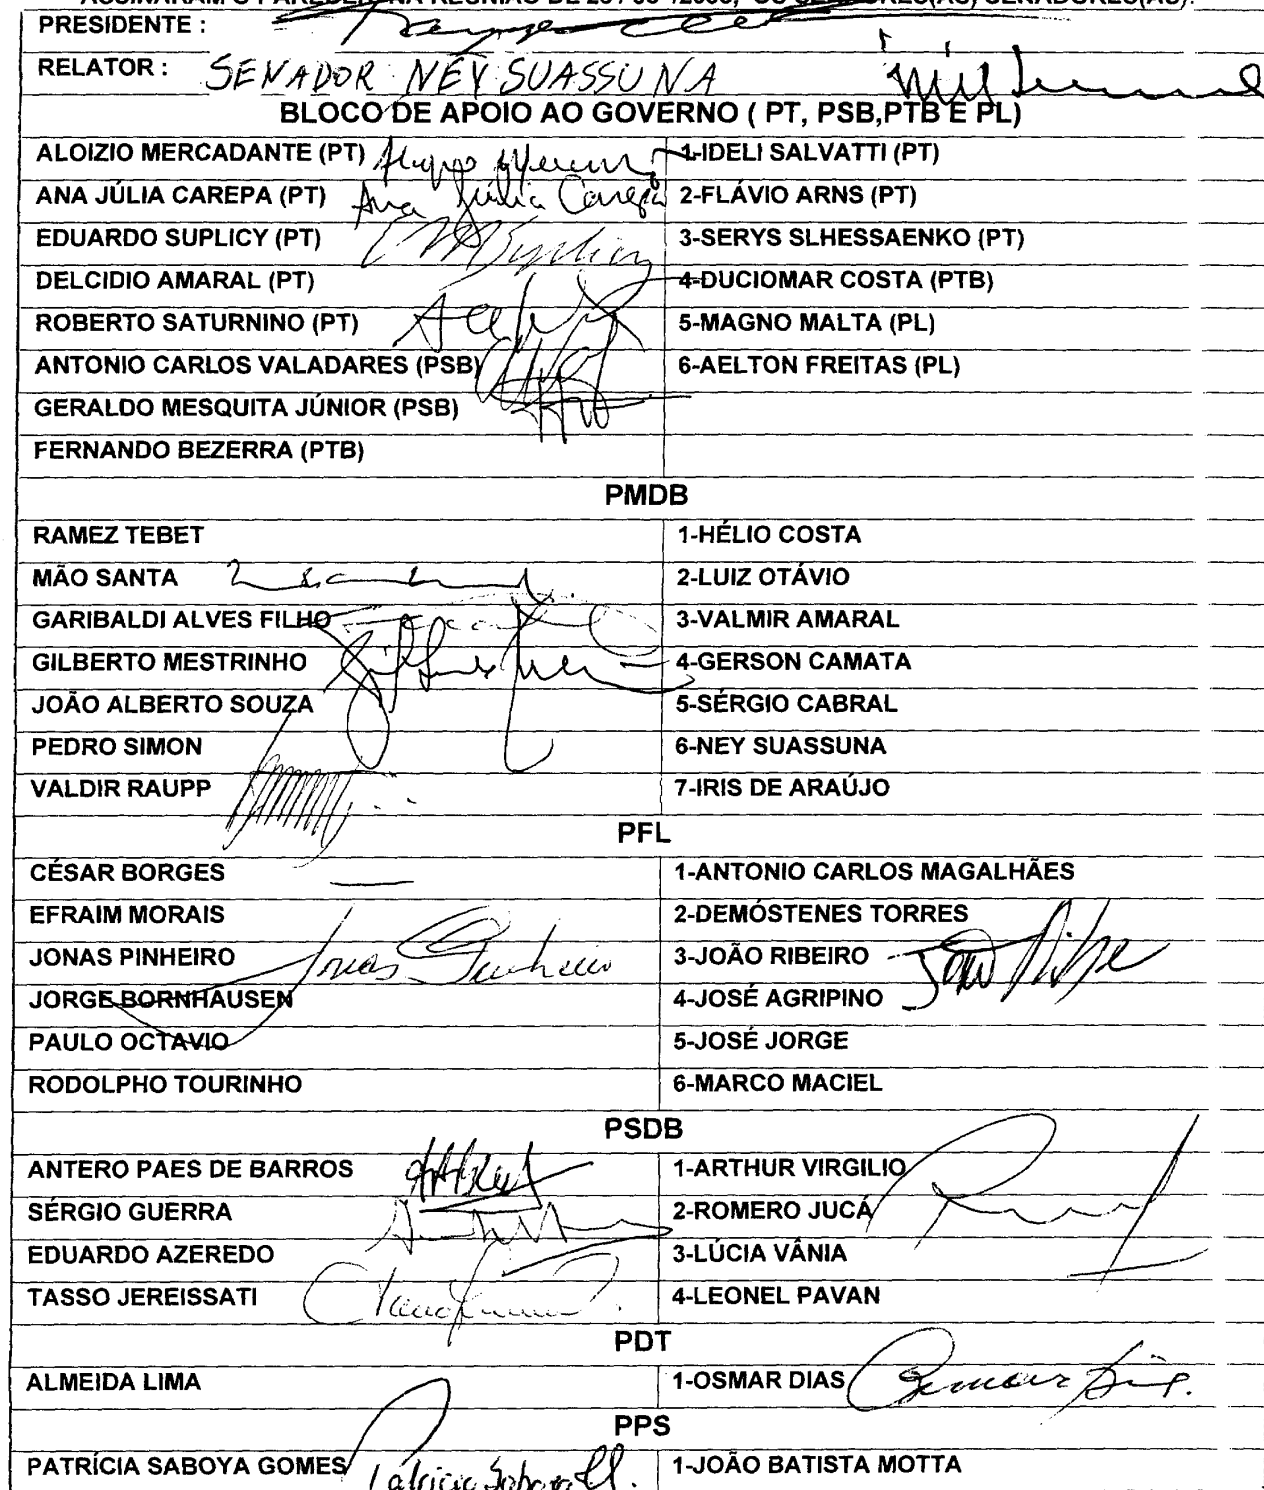 ASSINARAM O PARECER NA REUNIÃO DE
PRESIDENTE :
RELATOR : SENADOR NEY SUASSUNA
BLOCO DE APOIO AO GOVERNO ( PT, PSB,PTB E PL)
ALOIZIO MERCADANTE (PT) 1-IDELI SALVATTI (PT)
ANA JÚLIA CAREPA (PT) Ana Júlia Carepa 2-FLÁVIO ARNS (PT)
EDUARDO SUPLICY (PT) 3-SERYS SLHESSAENKO (PT)
DELCIDIO AMARAL (PT) 4-DUCIOMAR COSTA (PTB)
ROBERTO SATURNINO (PT) 5-MAGNO MALTA (PL)
ANTONIO CARLOS VALADARES (PSB) 6-AELTON FREITAS (PL)
GERALDO MESQUITA JÚNIOR (PSB)
FERNANDO BEZERRA (PTB)
PMDB
RAMEZ TEBET 1-HÉLIO COSTA
MÃO SANTA 2-LUIZ OTÁVIO
GARIBALDI ALVES FILHO 3-VALMIR AMARAL
GILBERTO MESTRINHO 4-GERSON CAMATA
JOÃO ALBERTO SOUZA 5-SÉRGIO CABRAL
PEDRO SIMON 6-NEY SUASSUNA
VALDIR RAUPP 7-IRIS DE ARAÚJO
PFL
CÉSAR BORGES 1-ANTONIO CARLOS MAGALHÃES
EFRAIM MORAIS 2-DEMÓSTENES TORRES
JONAS PINHEIRO Jonas Pinheiro 3-JOÃO RIBEIRO
JORGE BORNHAUSEN 4-JOSÉ AGRIPINO
PAULO OCTAVIO 5-JOSÉ JORGE
RODOLPHO TOURINHO 6-MARCO MACIEL
PSDB
ANTERO PAES DE BARROS 1-ARTHUR VIRGILIO
SÉRGIO GUERRA 2-ROMERO JUCÁ
EDUARDO AZEREDO 3-LÚCIA VÂNIA
TASSO JEREISSATI 4-LEONEL PAVAN
PDT
ALMEIDA LIMA 1-OSMAR DIAS Osmar Dias.
PPS
PATRÍCIA SABOYA GOMES Patricia Saboya 1-JOÃO BATISTA MOTTA